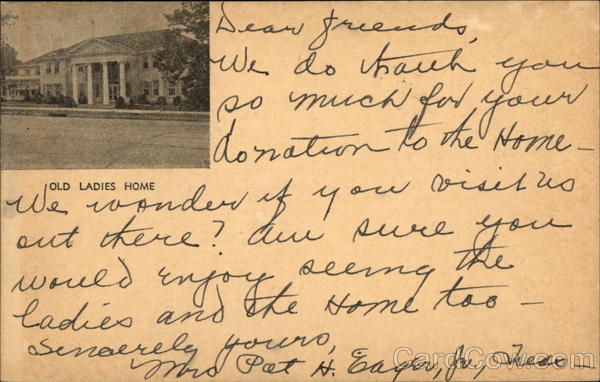 Dear friends,
We do thank you
so much for your
donation to the Home—
OLD LADIES HOME
We wonder if you visit us
out there? Am sure you
would enjoy seeing the
ladies and the Home too—
Sincerely yours,
Mrs Pat H. Eager, Jr., Treas—
CardCow.com